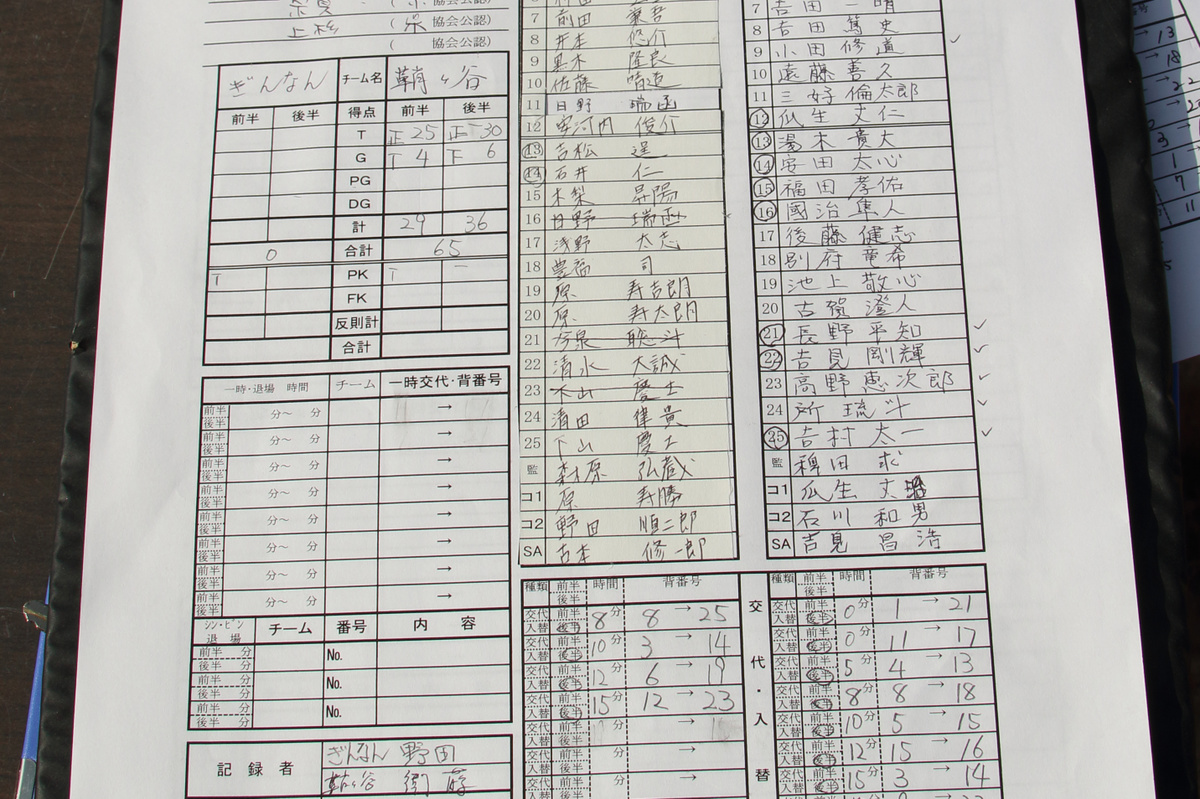 協会公認)
上杉 ( 協会公認)
( 協会公認)
ぎんなん チーム名 鞘ヶ谷
前半 後半 得点 前半 後半
T 正 25 正一 30
G T 4 下 6
PG
DG
計 29 36
0 合計 65
T PK T 一
FK
反則計
合計
一時・退場 時間 チーム 一時交代・背番号
前半 後半 分〜 分 →
前半 後半 分〜 分 →
前半 後半 分〜 分 →
前半 後半 分〜 分 →
前半 後半 分〜 分 →
前半 後半 分〜 分 →
前半 後半 分〜 分 →
前半 後半 分〜 分 →
シン・ビン 退場 チーム 番号 内容
前半 分 後半 分 No.
前半 分 後半 分 No.
前半 分 後半 分 No.
記録者 ぎんなん 野田
鞘ヶ谷
7 前田
8 井本 悠介
9 黒木 隆良
10 佐藤 晴道
11 日野 瑞函
12 安河内 俊介
13 吉松
14 石井 仁
15 木梨 昇陽
16 日野 瑞函
17 浅野 太志
18 豊福 司
19 原 寿吉朗
20 原 寿太朗
21 今泉 聡斗
22 清水 大誠
23 木山 慶士
24 清田 隼貴
25 下山 慶士
監 森原 弘蔵
コ1 原 寿勝
コ2 野田 順二郎
SA 古本 修一郎
7 吉田 一晴
8 吉田 篤史
9 小田 修道
10 遠藤 善久
11 三好 倫太郎
12 瓜生 丈仁
13 湯木 貴大
14 安田 太心
15 福田 孝佑
16 國治 隼人
17 後藤 健志
18 別府 竜希
19 池上 敬心
20 古賀 澄人
21 長野 平知
22 吉見 剛輝
23 高野 恵次郎
24 所 琉斗
25 吉村 太一
監 稗田 求
コ1 瓜生 丈
コ2 石川 和男
SA 吉見 昌浩
種類 前半 後半 時間 背番号
交代 入替 前半 後半 8分 8 → 25
交代 入替 前半 後半 10分 3 → 14
交代 入替 前半 後半 12分 6 → 19
交代 入替 前半 後半 15分 12 → 23
交代 入替 前半 後半 分 →
交代 入替 前半 後半 分 →
交代 入替 前半 後半 分 →
交代・入替
種類 前半 後半 時間 背番号
交代 入替 前半 後半 0分 1 → 21
交代 入替 前半 後半 0分 11 → 17
交代 入替 前半 後半 5分 4 → 13
交代 入替 前半 後半 8分 8 → 18
交代 入替 前半 後半 10分 5 → 15
交代 入替 前半 後半 12分 15 → 16
交代 入替 前半 後半 15分 3 → 14
→ 13
→ 18